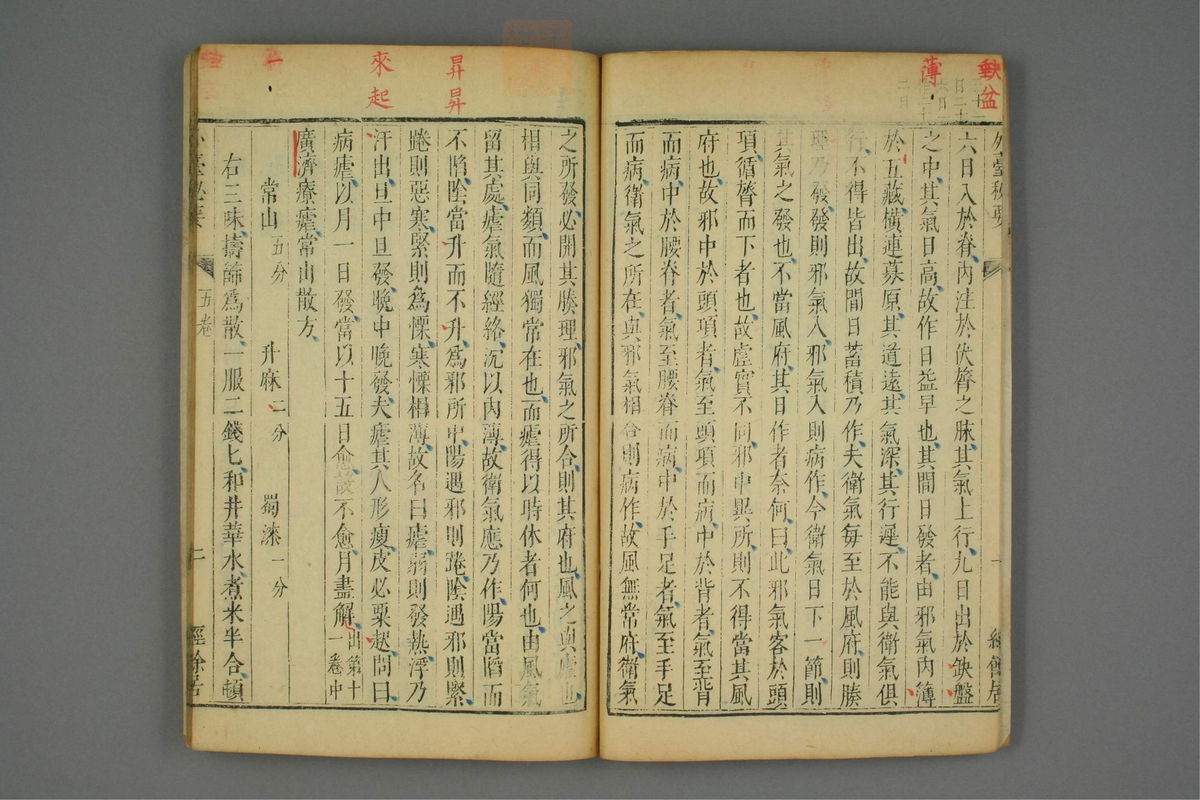 缺盆
薄
外臺秘要
六日入於脊內注於伏膂之脉其氣上行九日出於缺盤
之中其氣日高故作日益早也其間日發者由邪氣內簿
於五藏橫連募原其道遠其氣深其行遲不能與衛氣俱
行不得皆出故間日蓄積乃作夫衛氣每至於風府則腠
理乃發發則邪氣入邪氣入則病作今衛氣日下一節則
其氣之發也不當風府其日作者奈何曰此邪氣客於頭
項循膂而下者也故虛實不同邪中異所則不得當其風
府也故邪中於頭項者氣至頭項而病中於背者氣至背
而病中於腰脊者氣至腰脊而病中於手足者氣至手足
而病衛氣之所在與邪氣相合則病作故風無常府衛氣
昇昇
來起
之所發必開其腠理邪氣之所合則其府也風之與虛也
相與同類而風獨常在也而瘧得以時休者何也由風氣
留其處瘧氣隨經絡沉以內薄故衛氣應乃作陽當㬱而
不陷陰當升而不升為邪所中陽遇邪則踡陰遇邪則緊
踡則惡寒緊則為慄寒慄相薄故名曰瘧弱則發熱浮乃
汗出旦中旦發晚中晚發夫瘧其人形瘦皮必粟趂問曰
病瘧以月一日發當以十五日愈設不愈月盡解出第十
一卷中
廣濟療瘧常山散方
常山五分 升麻二分 蜀漆一分
右三味擣篩為散一服二錢匕和井華水煮米半合頓
五卷
二
經餘居